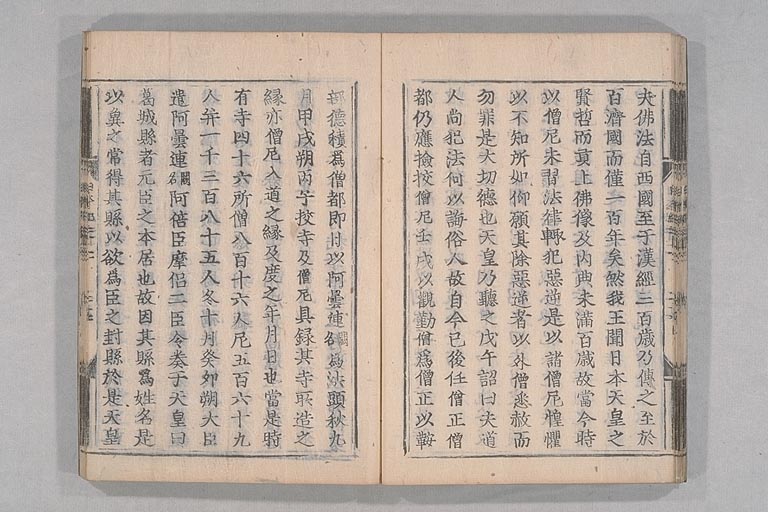 夫佛法自西國至于漢經三百歲乃傳之至於
百濟國而僅一百年矣然我王聞日本天皇之
賢哲而貢上佛像及內典未滿百歲故當今時
以僧尼未習法律輙犯惡逆是以諸僧尼惶懼
以不知所如仰願其除惡逆者以外僧尼悉赦而
勿罪是大功德也天皇乃聽之戊午詔曰夫道
人尚犯法何以誨俗人故自今已後任僧正僧
都仍應撿挍僧尼壬戌以觀勤僧爲僧正以鞍
部德積爲僧都即日以阿曇連闕名爲法頭秋九
月甲戌朔丙子挍寺及僧尼具錄其寺所造之
緣亦僧尼入道之緣及度之年月日也當是時
有寺四十六所僧八百十六人尼五百六十九
人并一千三百八十五人冬十月癸卯朔大臣
遣阿曇連闕名阿倍臣摩侶二臣令奏于天皇曰
葛城縣者元臣之本居也故因其縣爲姓名是
以兾之常得其縣以欲爲臣之封縣於是天皇